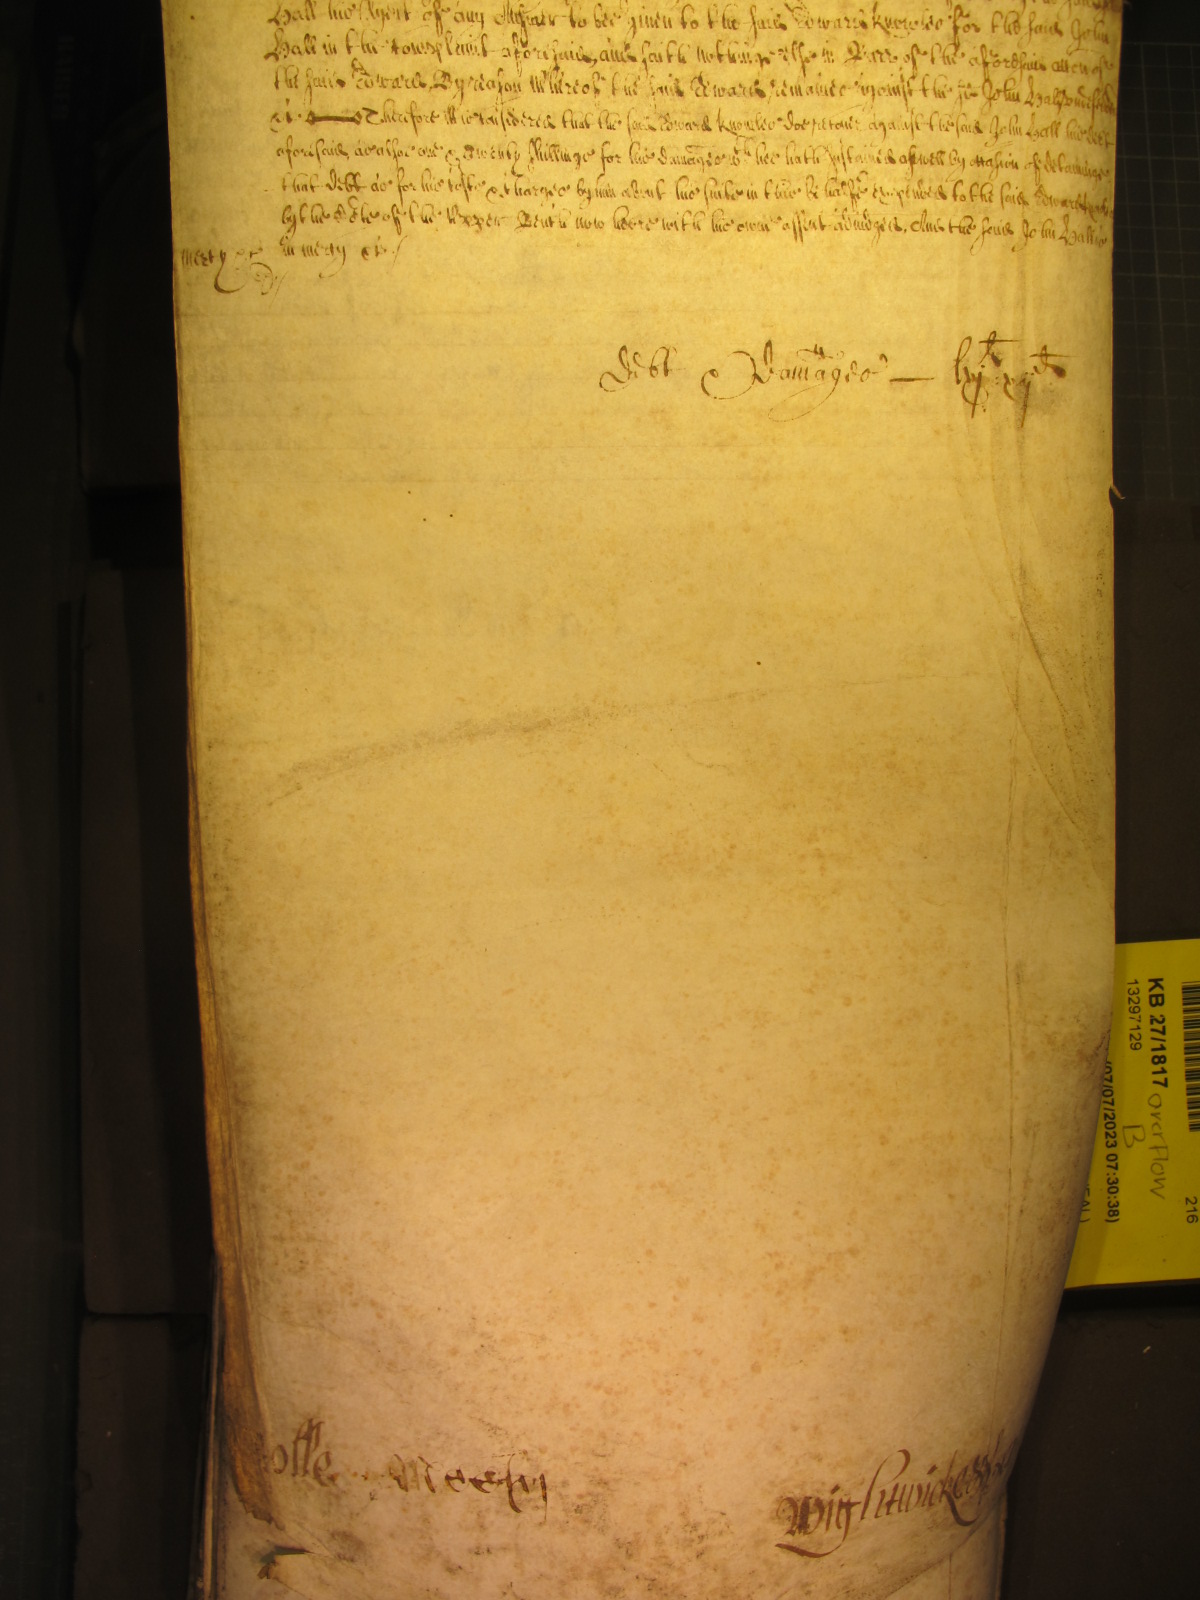 Hall his Agent of any Answer to bee given to the said Edward Knowles for the said John
Hall in the Complaint aforesaid, and saith nothinge else in Barr of the aforesaid accon of
the said Edward, By reason Whereof the said Edward remaines against the sd John Hall undefended
&c Therefore It is considered that the said Edward Knowles doe recover against the said John Hall his debt
aforesaid, as alsoe one & Twenty shillings for his damages wch hee hath susteined aswell by occasion of deteininge
that debt as for his costs & charges by him about his suite in this behalfe expended to the said Edward
by the of the Upper Bench now heere with his owne assent adiudged, And the said John Hall is
in mercy &c./
mercy &c
debt & Damages — lxjli xjd
Rolle Mccxiij
Wightwicke
KB 27/1817 overflow
B
13297129
07/07/2023 07:30:38)
216